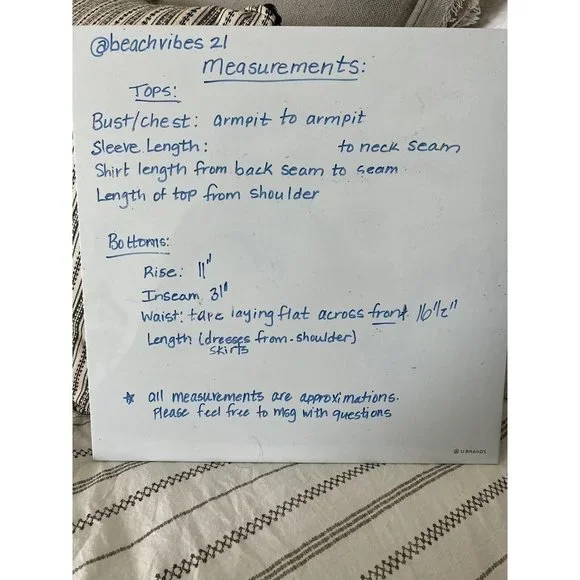 @beachvibes 21
Measurements:
Tops:
Bust/chest: armpit to armpit
Sleeve Length: to neck seam
Shirt length from back seam to seam.
Length of top from shoulder
Bottoms:
Rise: 11"
Inseam 31"
Waist: tape laying flat across front 16 1/2"
Length (dresses from-shoulder)
skirts
* all measurements are approximations.
Please feel free to msg with questions
@ U BRANDS